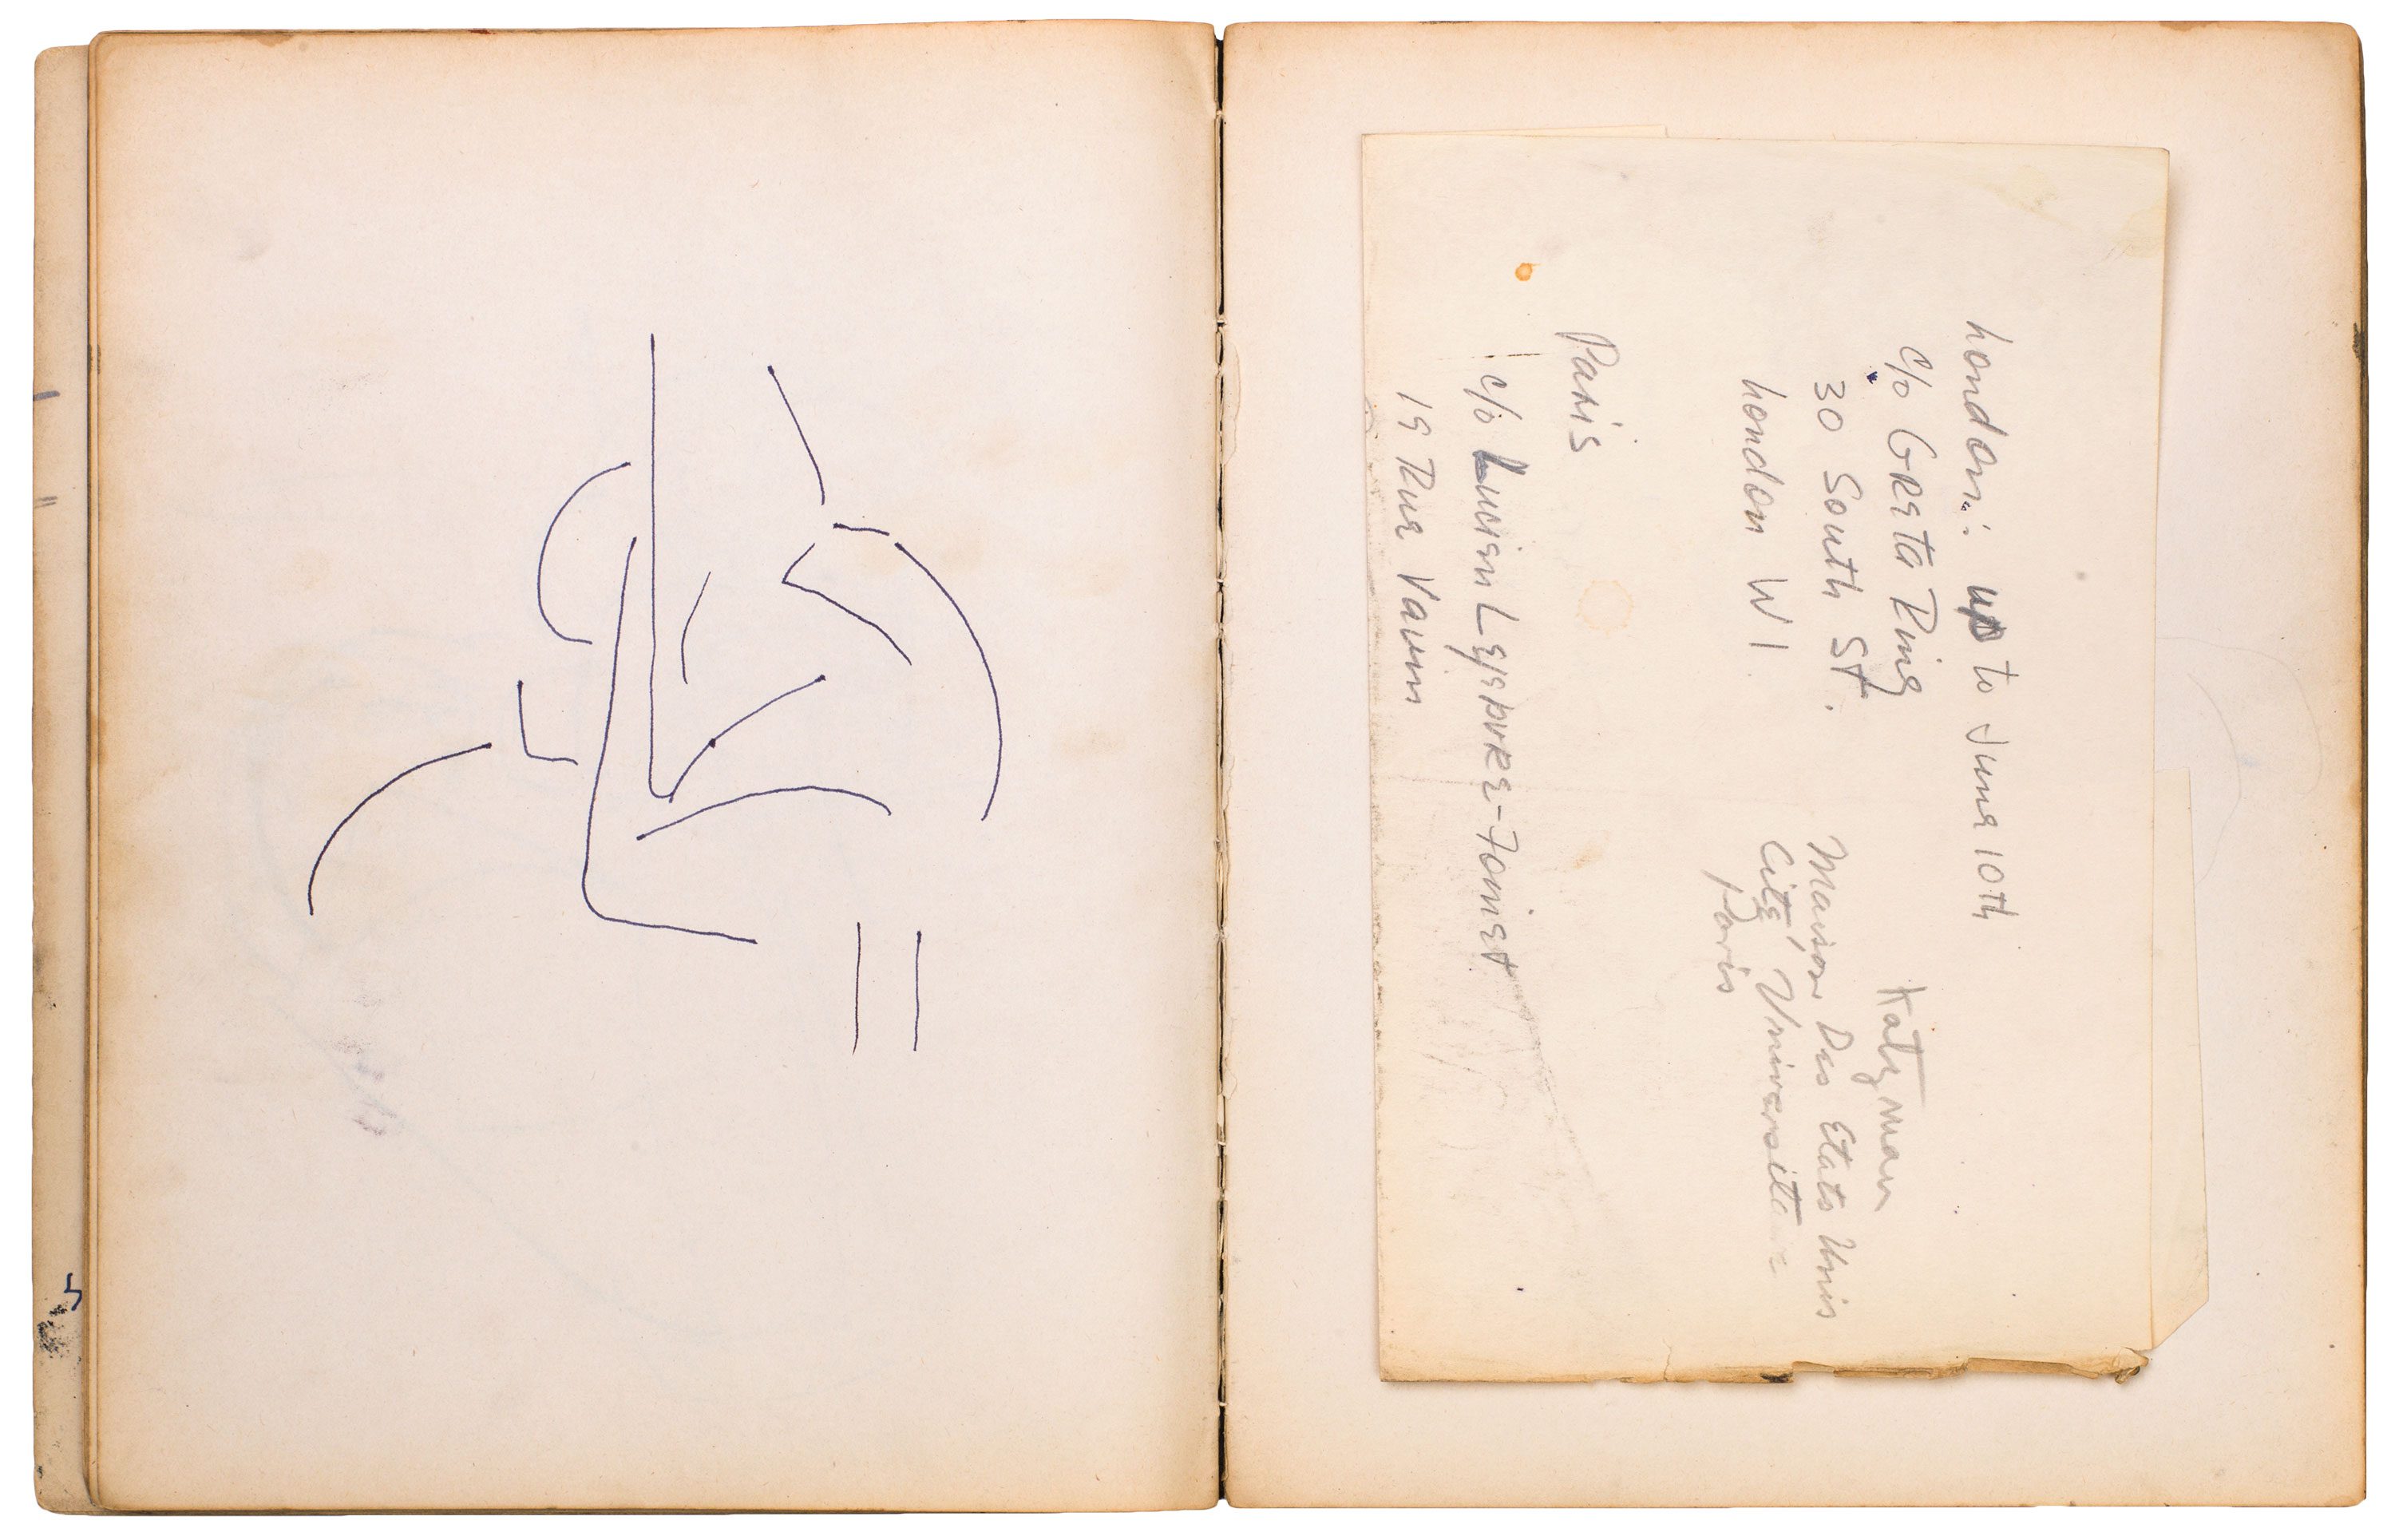 London: up to June 10th
c/o Greta Ring
30 South St.
London W 1
Paris
c/o Lucien Lefebvre-Foinet
19 Rue Vavin
Katzman
Maison Des Etats Unis
Cité Universitaire
Paris